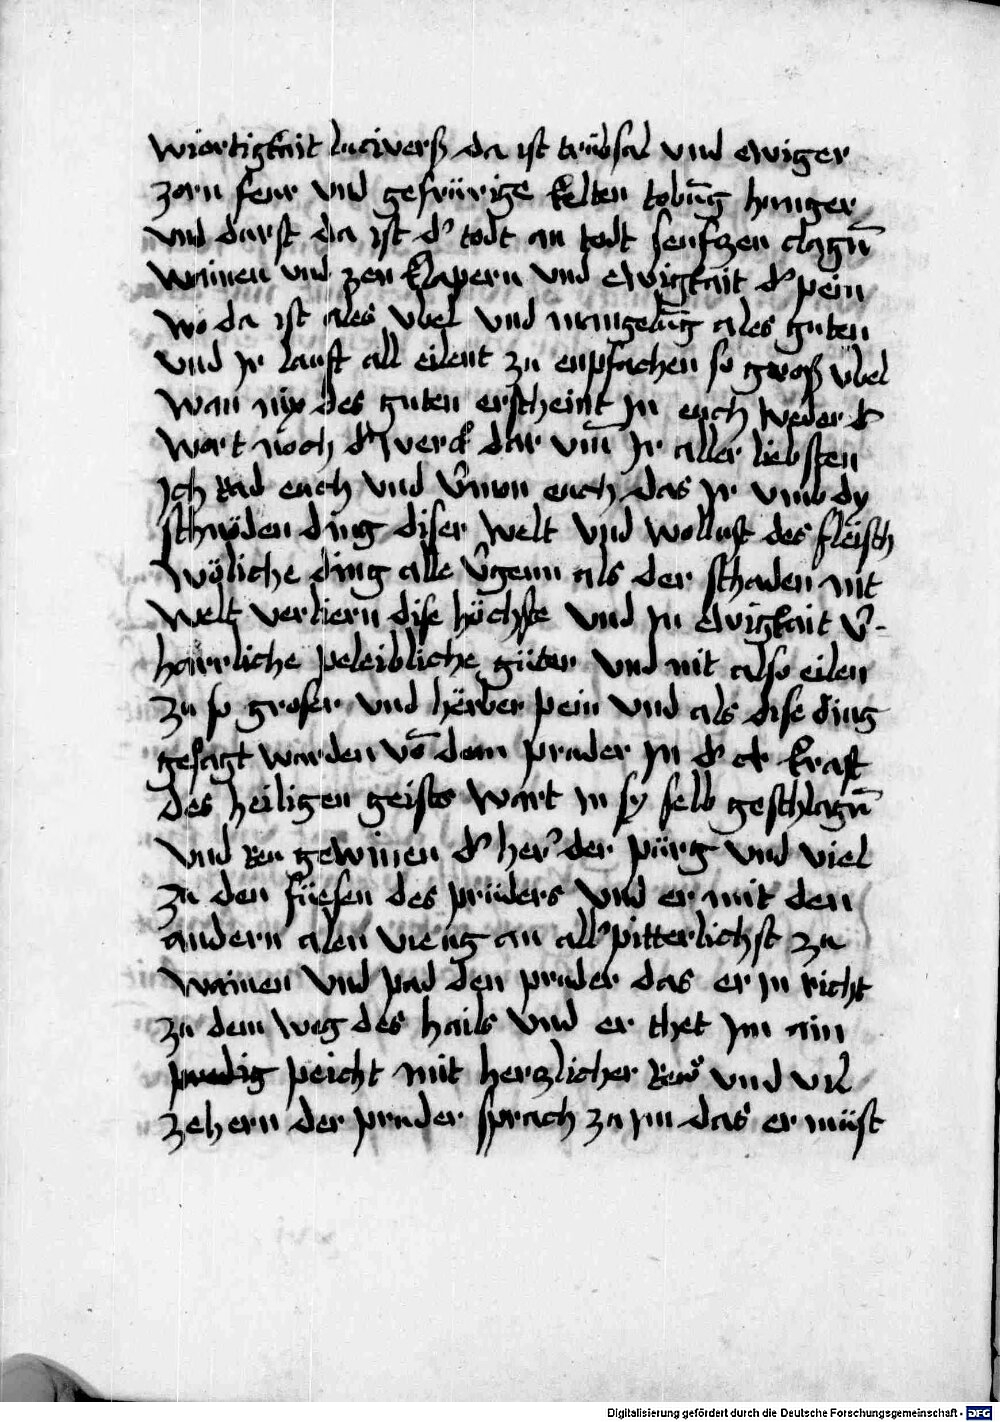 wiertigkait luciverß da ist trübsal vnd ewiger
zorn feur vnd gefrürige kelten tobūg hunger
vnd durst da ist d' todt an todt seufzen clagn̄
wainen vnd zen klapern vnd ewigkait d' pein
wo da ist ales vbel vnd mangelūg ales guten
vnd jr lauft all eilent zu enpfachen so groß übel
wan nix des guten erscheint jn euch weder d'
wort noch d' werck dar vm̄ jr aller liebsten
jch Rad euch vnd v'mon euch das jr vmb dy
schnöden ding diser welt vnd wollust des fleisch
wöliche ding alle v'genn als der schaden nit
welt verliern dise höchste vnd jn ewigkait v'-
harrliche peleibliche güter vnd nit also eilen
zu so groser vnd herber pein vnd als dise ding
gesagt warden vō dem pruder jn d' kraft
des heiligen geists wart jn sy selb geschlagn̄
vnd Reu gewinen d' her' der pürg vnd viel
zu den füesen des prüders vnd er mit den
andern alen vieng an all' pitterlichst zu
wainen vnd pad den pruder das er jn richt
zu dem weg des hails vnd er thet jm ain
peicht mit herzlicher Rew vnd vil
zehern der pruder sprach zu jm das er müst
Digitalisierung gefördert durch die Deutsche Forschungsgemeinschaft - DFG